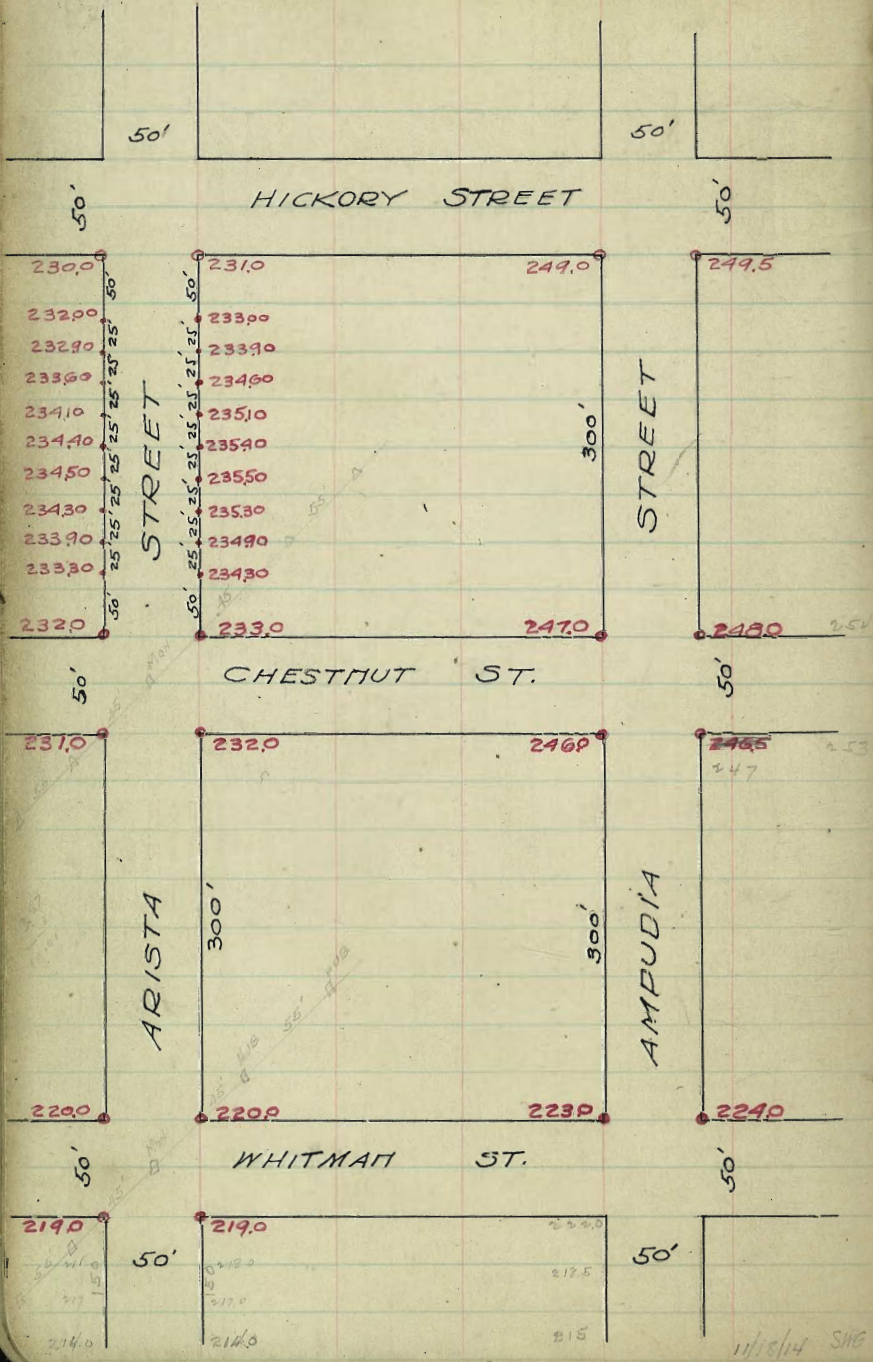 50' 50'
50' HICKORY STREET 50'
230.0 231.0 249.0 249.5
50' 50'
232.00 233.00
25' 25'
232.90 233.90
25' 25'
233.60 234.60
25' 25'
234.10 235.10
25' 25'
234.40 235.40
25' 25'
234.50 235.50
25' 25'
234.30 235.30
25' 25'
233.90 234.90
25' 25'
233.30 234.30
50' 50'
STREET 300' STREET
55'
232.0 233.0 247.0 248.0
50' CHESTNUT ST. 50'
231.0 232.0 246.0 246.5 253
247
ARISTA 300' 300' AMPUDIA
55'
220.0 220.0 223.0 224.0
50' WHITMAN ST. 50'
219.0 219.0 222.0
50' 50'
150 150 218.0 218.5
217 217.0
214.0 214.0 215
11/18/14 SHG